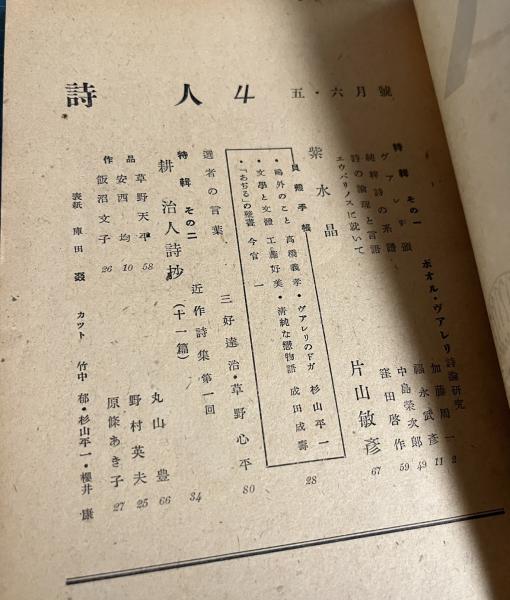 詩人 4 五・六月號
特輯 その一 ポオル・ヴァレリイ詩論研究
ヴァレリイ頌 加藤周一 2
純粹詩の系譜 福永武彥 11
詩の論理と言語 中島榮次郎 49
エウパリノスに就いて 窪田啓作 59
紫水晶 片山敏彥 67
貝殼手帳
鷗外のこと 高橋義孝・ヴァレリのドガ 杉山平一
・文學と文體 工藤好美・淸純な戀物語 成田成壽
・「あぢる」の祕書 今官一
28
選者の言葉 三好達治・草野心平 80
特輯 その二 近作詩集 第一回
耕治人詩抄(十一篇) 34
作品
草野天平 58 丸山豊 66
安西均 10 野村英夫 25
飯沼文子 26 原條あき子 27
表紙 庫田叕 カツト 竹中郁・杉山平一・櫻井康